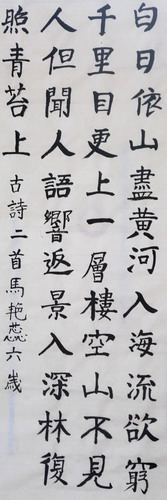 白日依山盡黃河入海流欲窮
千里目更上一層樓空山不見
人但聞人語響返景入深林復
照青苔上
古詩二首馬艳蕊六歲